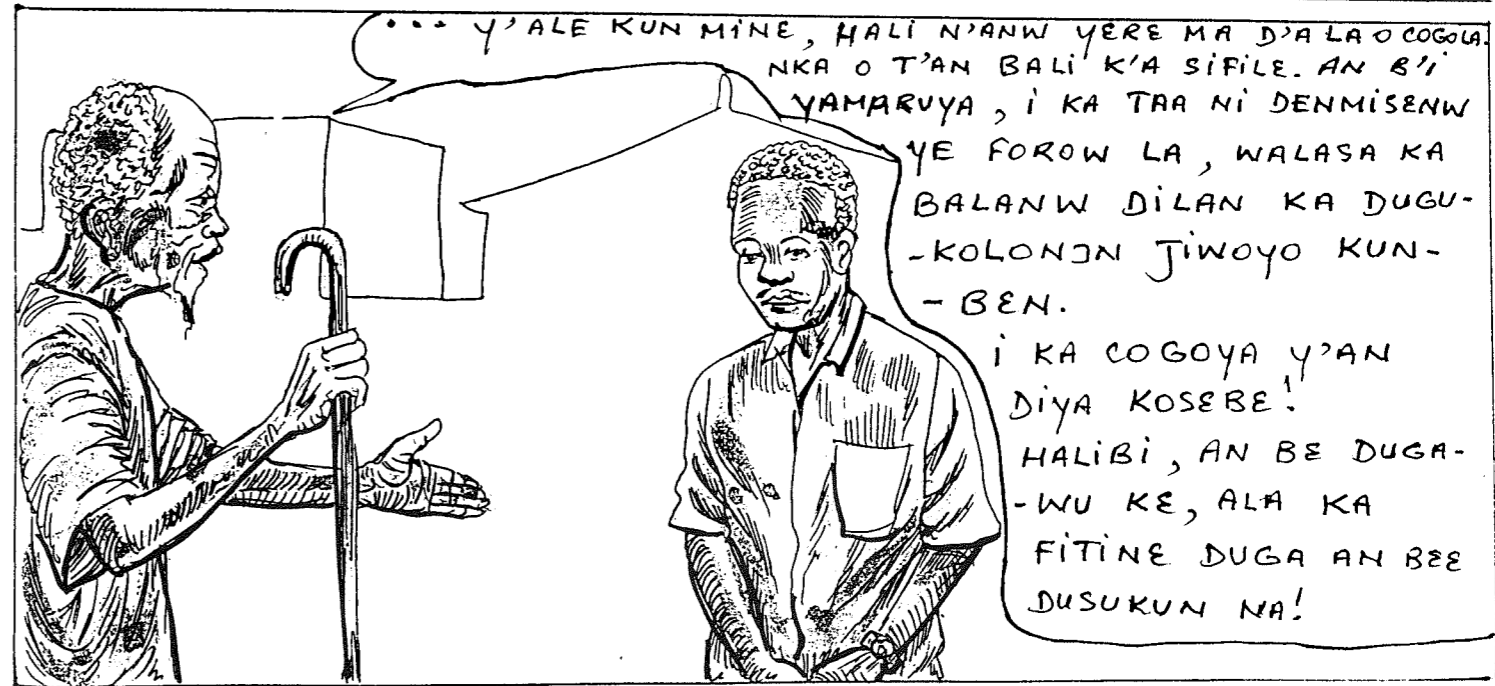 ... Y'ALE KUN MINƐ, HALI N'ANW YƐRƐ MA D'A LA O COGOLA.
NKA O T'AN BALI K'A SIFILƐ. AN B'I
YAMARUYA, I KA TAA NI DENMISƐNW
YE FOROW LA, WALASA KA
BALANW DILAN KA DUGU-
-KOLONƆN JIWOYO KUN-
-BƐN.
I KA COGOYA Y'AN
DIYA KOSƐBƐ!
HALIBI, AN BƐ DUGA-
-WU KƐ, ALA KA
FITINƐ DUGA AN BƐƐ
DUSUKUN NA!